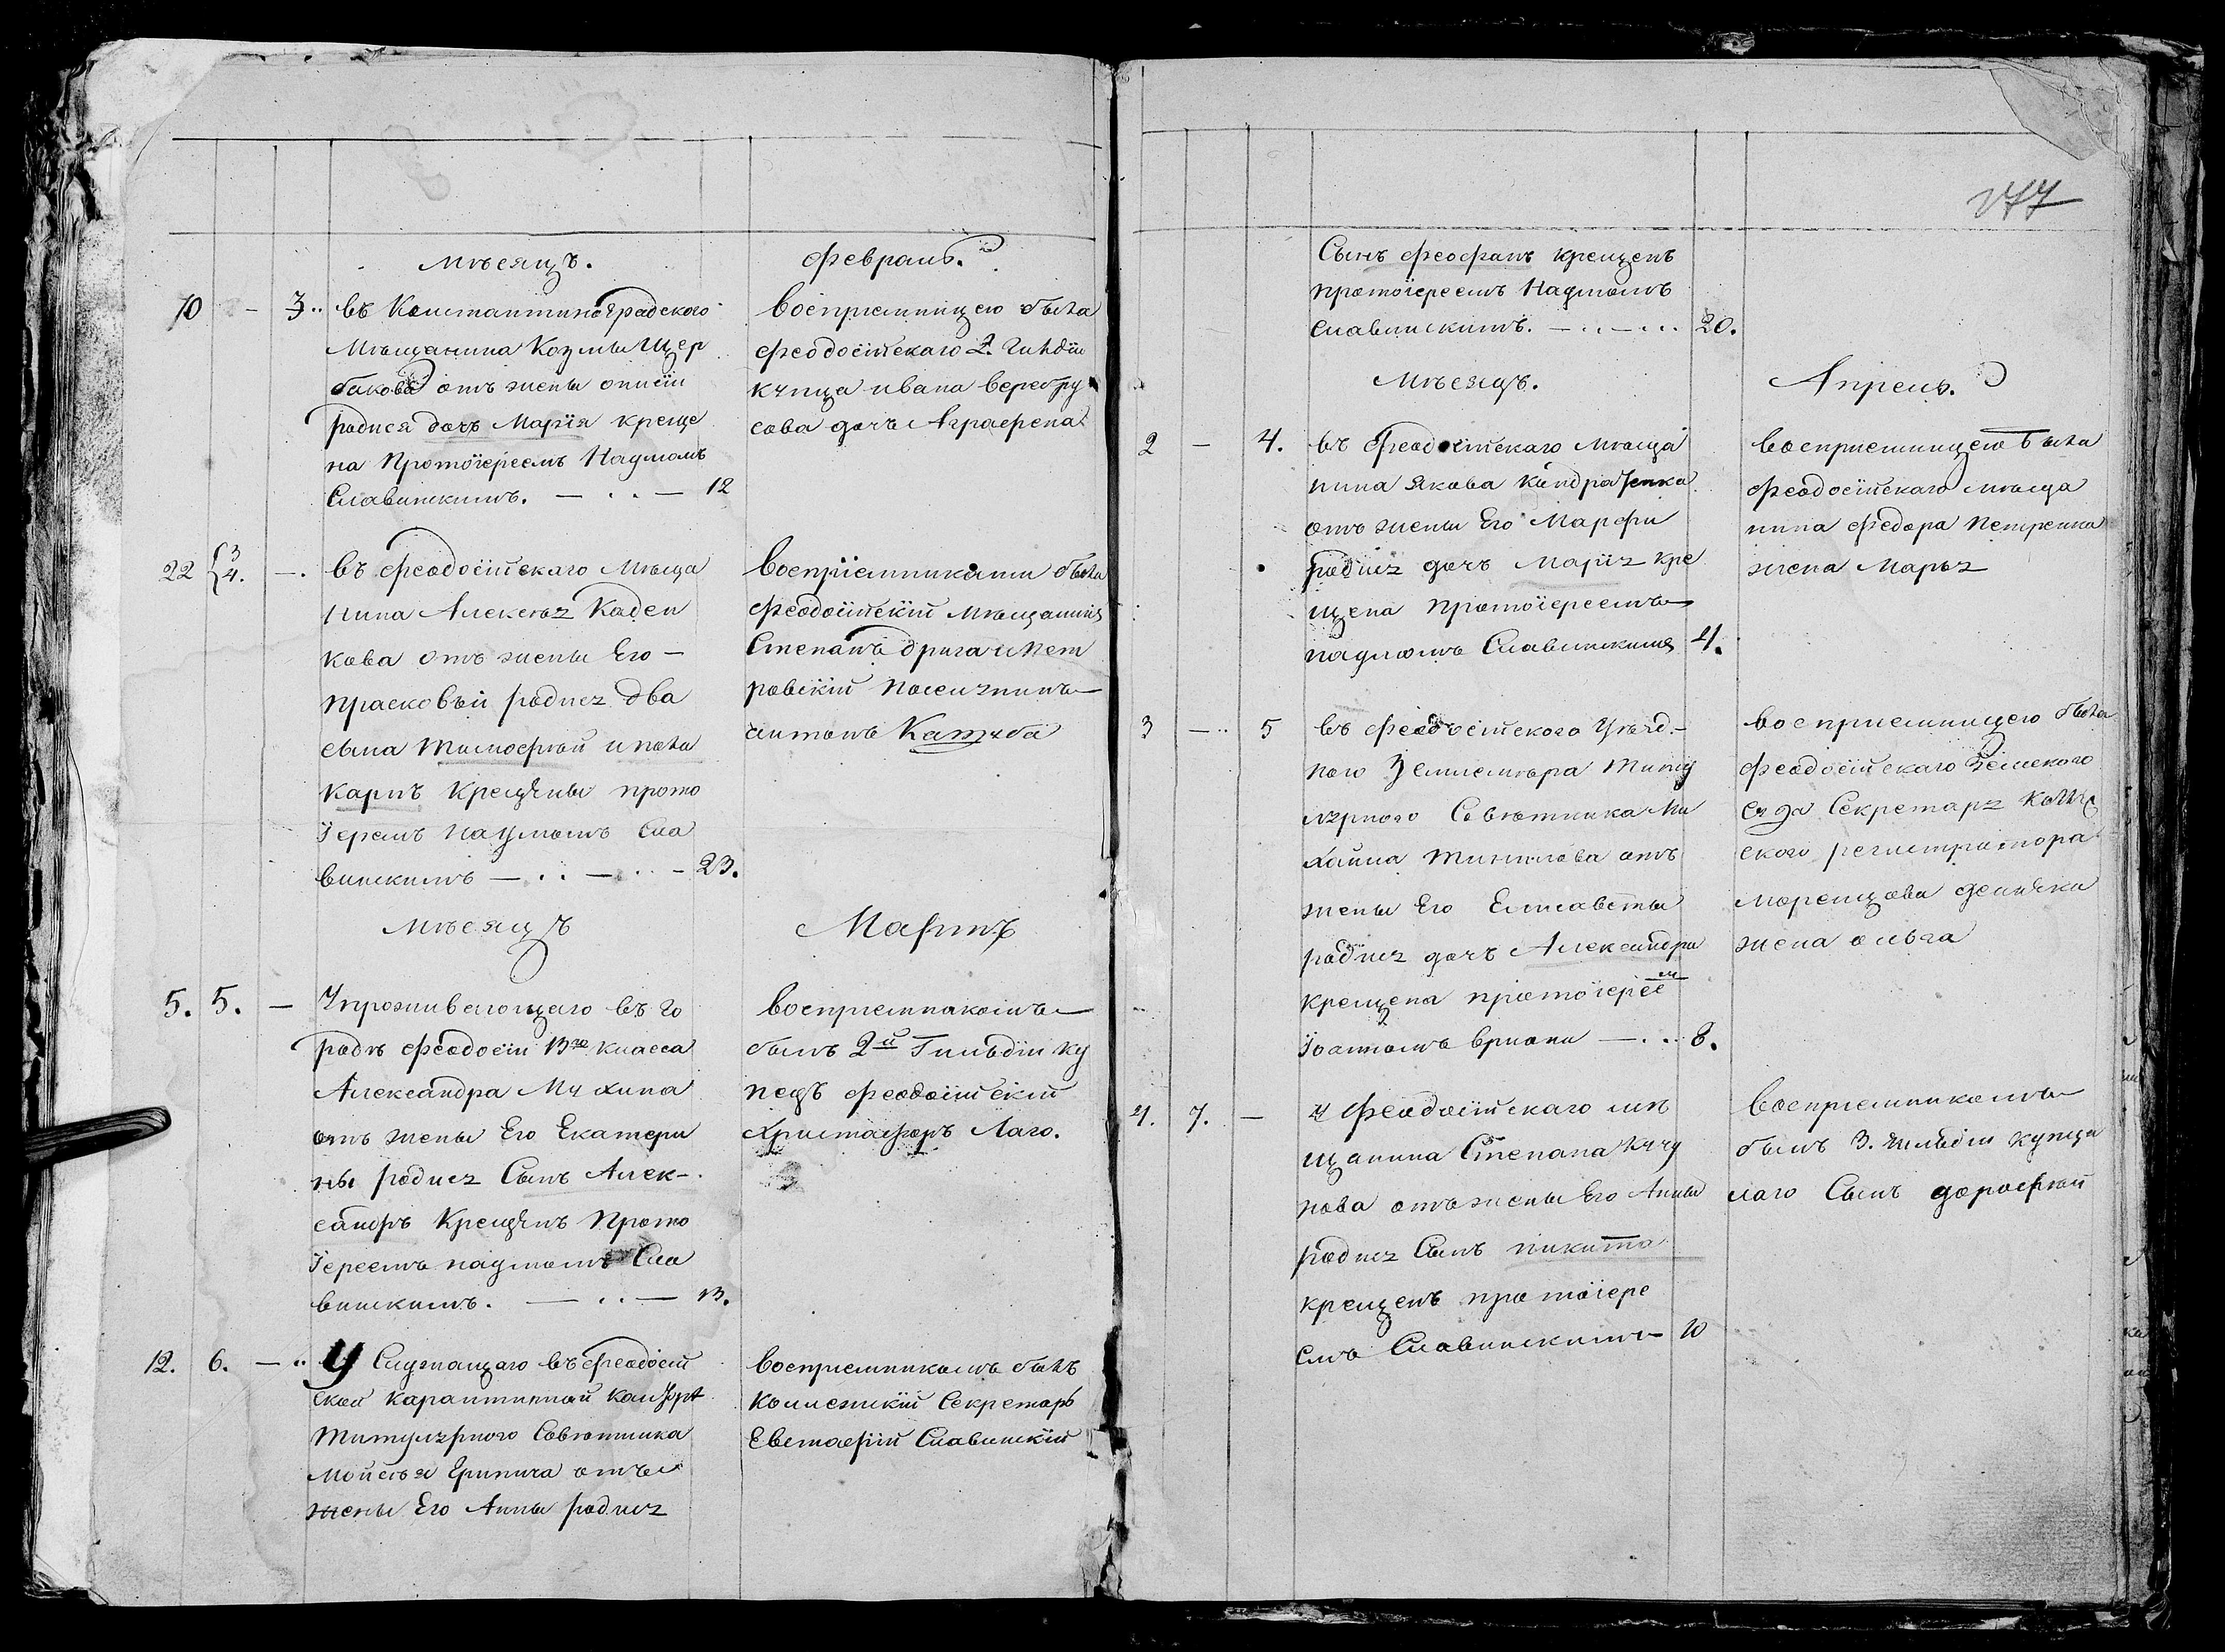 мѣсяцъ. февраль.
10 - 3.. въ Константиноградского
мѣщанина Козмы Щер
бакова отъ жены
родися дочь Марія креще
на Протоіереемъ Наумомъ
Славинскимъ. — .. — 12
воспріемницею была
феодосійскаго 2. гилдіи
купца ивана
сова дочь Аграфена
22 {3 4. —. въ феодосійскаго мѣща
нина Алексѣя Каден
кова отъ жены Его —
прасковьи родися два
сына тимофѣй и поли
карпъ крещены прото
іереемъ наумомъ сла
винскимъ — .. — .. - 23.
воспріемниками были
феодосійскій мѣщанинъ
Степанъ Дрига и пет
ровскій поселянинъ
антонъ
мѣсяцъ Мартъ
5. 5. — Упроживающаго въ го
родѣ феодосіи 13го класса
Александра Мухина
отъ жены Его Екатери
ны родися Сынъ Алек-.
сандръ крещенъ прото
іереемъ наумомъ Сла
винскимъ. — .. — 13.
воспріемнакомъ
былъ 2й Гильдіи ку
пецъ феодосійскій
Христофоръ Лаго.
12. 6. — .. У Служащаго въ феодосій
ской карантинной
титулярного Совѣтника
мойсѣя отъ
жены Его Анны родися
воспріемникомъ былъ
коллежскій Секретарь
Евстафій Славинскій
177
Сынъ феофанъ крещенъ
протоіереемъ Наумомъ
славинскимъ. — .. — ... 20.
мѣсяцъ. Апрель.
2 - 4. въ феодосійскаго мѣща
нина якова Кондратенка
отъ жены Его Марфи
родися дочь марія кре
щена протоіереемъ
наумомъ Славинкимъ 4.
воспріемницею была
феодосійскаго мѣща
нина федора петренка
жена марья
3 —.. 5 въ феодосійского уѣзд.-
ного Землемѣра титу
лярного Совѣтника ми
хаила отъ
жены Его Елисаветы
родися дочь Александра
крещена протоіерее
мъ
іоанномъ — ... 8.
воспріемницею была
феодосійскаго Земского
суда Секретаря
ского регистратора
жена ольга
4. 7. — у феодосійскаго мѣ
щанина Степана
нова отъ жены Его Анны
родися Сынъ никита
крещенъ протоіере
емъ Славинскимъ - 10
воспріемникомъ
былъ 3. гильдіи купца
лаго Сынъ дорофѣй